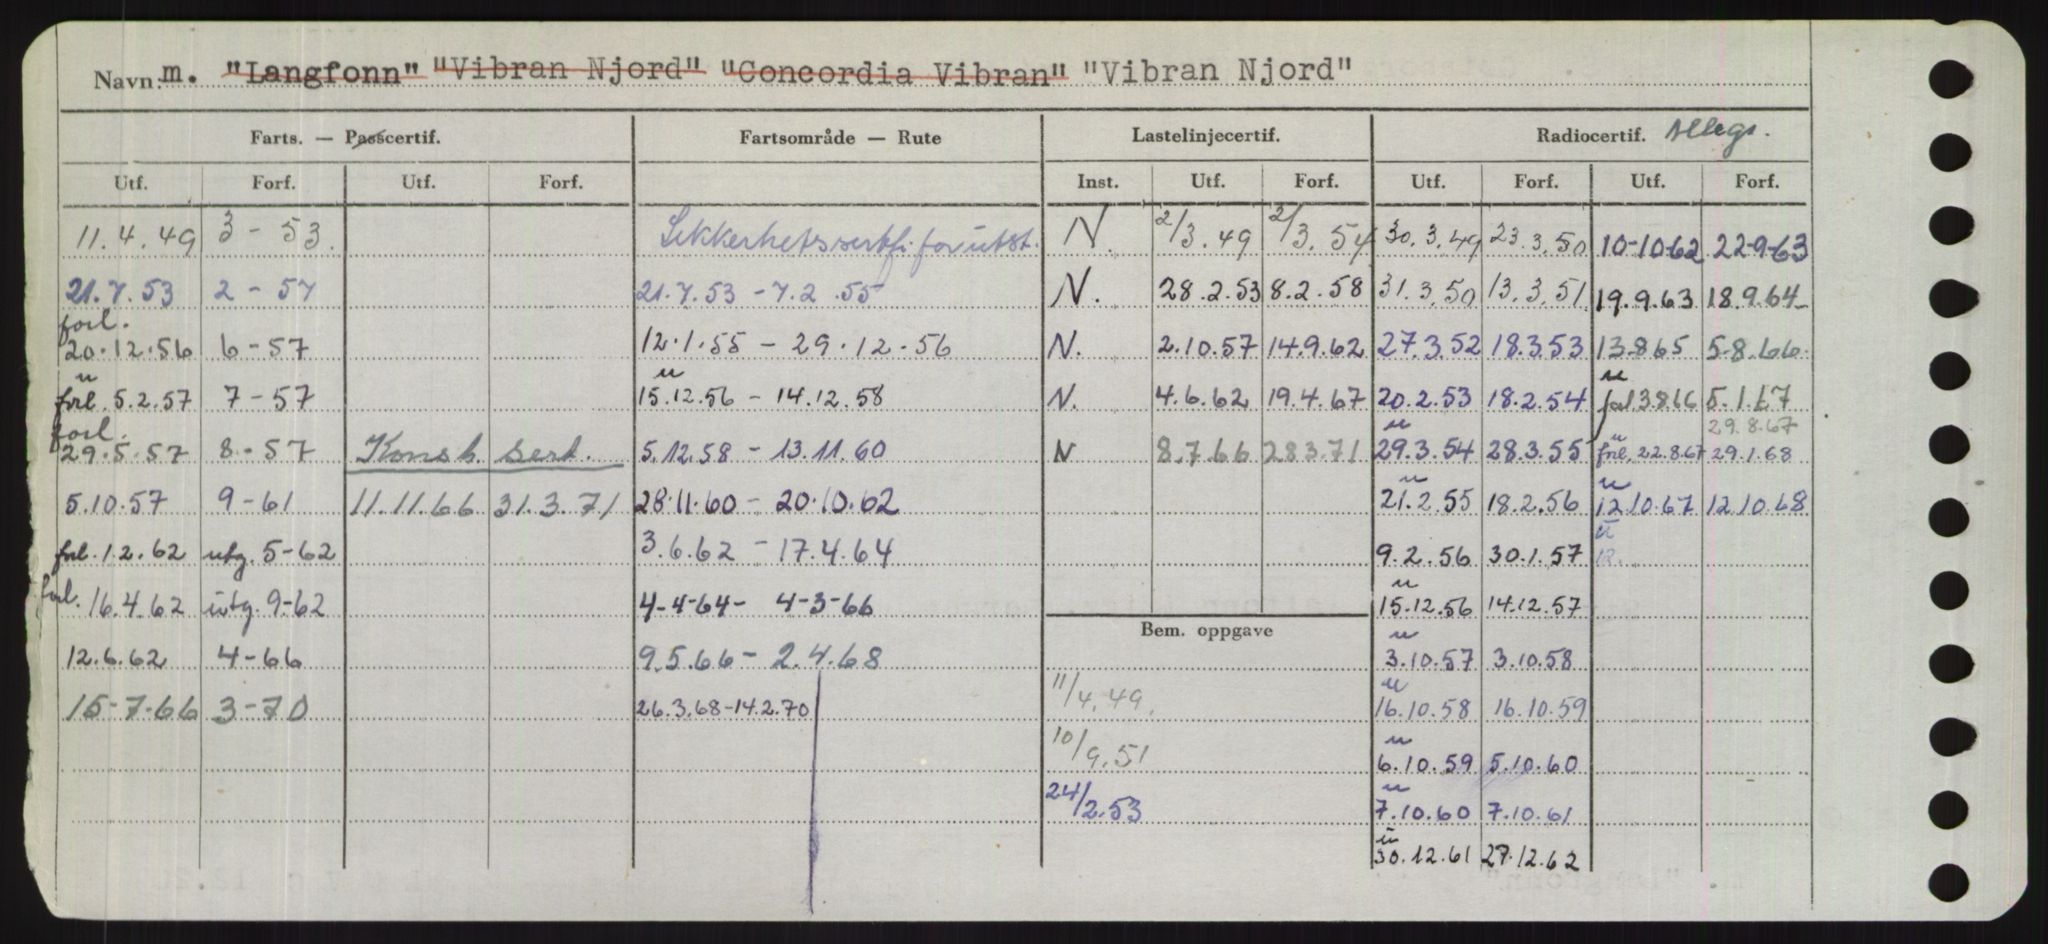 Navn: m. "Langfonn" "Vibran Njord" "Concordia Vibran" "Vibran Njord"
Farts. — Passcertif. Fartsområde — Rute Lastelinjecertif. Radiocertif.
Utf. Forf. Utf. Forf. Inst. Utf. Forf. Utf. Forf. Utf. Forf.
11.4.49 3 - 53. Sikkerhetssertfi. for utst. N. 2/3.49 2/3.54 30.3.49 23.3.50 10-10-62 22-9-63
21.7.53 2 - 57 21.7.53 - 7.2.55 N. 28.2.53 8.2.58 31.3.50 13.3.51 19.9.63 18.9.64
forl.
20.12.56 6 - 57 12.1.55 - 29.12.56 N. 2.10.57 14.9.62 27.3.52 18.3.53 13.8.65 5.8.66
u u u
forl. 5.2.57 7 - 57 15.12.56 - 14.12.58 N. 4.6.62 19.4.67 20.2.53 18.2.54 forl 3.8.66 5.1.67
forl. u u 29.8.67
29.5.57 8 - 57 Konst. sert. 5.12.58 - 13.11.60 N 8.7.66 28.3.71 29.3.54 28.3.55 forl. 22.8.67 29.1.68
u u
5.10.57 9 - 61 11.11.66 31.3.71 28.11.60 - 20.10.62 21.2.55 18.2.56 12.10.67 12.10.68
u
forl. 1.2.62 utg. 5-62 3.6.62 - 17.4.64 9.2.56 30.1.57 12.
u
forl. 16.4.62 utg. 9-62 4-4-64 - 4-3-66 15.12.56 14.12.57
Bem. oppgave
u
12.6.62 4-66 9.5.66 - 2.4.68 3.10.57 3.10.58
u
15-7-66 3-70 26.3.68 - 14.2.70 11/4.49. 16.10.58 16.10.59
u
10/9.51 6.10.59 5.10.60
u
24/2.53 7.10.60 7.10.61
u
30.12.61 27.12.62